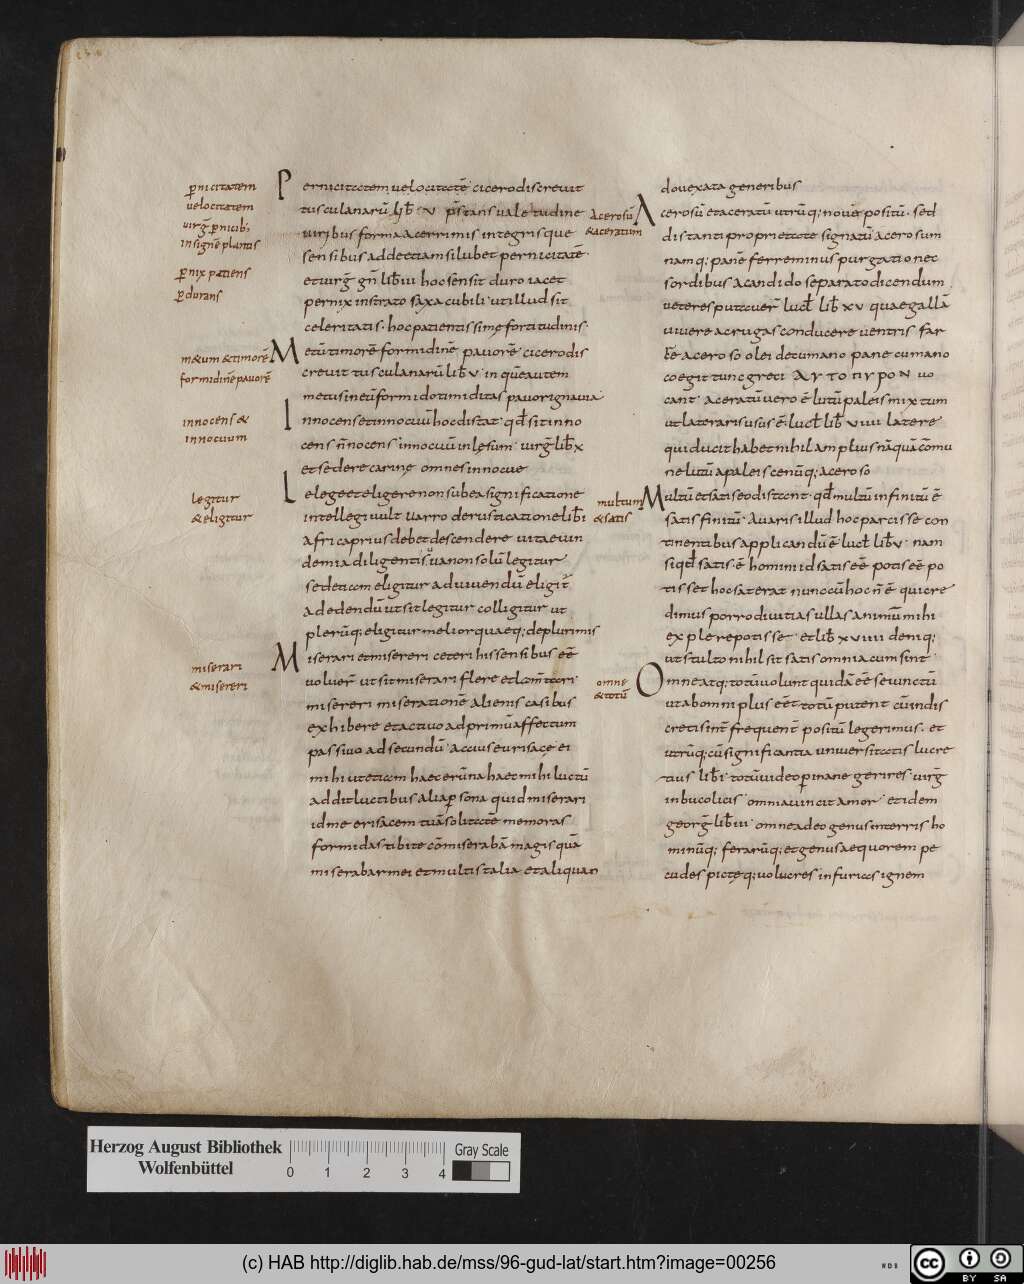 pnicitatem
uelocitatem
uirg̅ pnicib;
insigne plantas
pnix patiens
pdurans
metum & timorē
formidinē pauorē
innocens &
innocuum
legitur
& eligitur
miserari
& misereri
Pernicitatem uelocitatē cicero discreuit
tusculanarū lib̅ v p̅stans ualetudine
uiribus forma acerrimis integrisque
sensibus adde etiam si lubet pernicitatē
et uirg̅ gn̅ lib̅ iii hoc sensit duro iacet
pernix instrato saxa cubili ut illud sit
celeritatis · hoc patientissime fortitudinis ·
Metū timorē formidinē pauorē cicero dis
creuit tusculanarū lib̅ v in quē autem
metus inetū formido timiditas pauor ignauia
Innocens et innocuū hoc distat · qd̅ sit inno
cens n̅ nocens innocuū inlęsum · uirg̅ lib̅ x
et sedere carinę omnes innocue
Legere et eligere non subea significatione
intellegi uult uarro de rusticatione lib̅ i
africa prius debet descendere uitae uin
demia diligentis ua non solū legitur
sed etiam eligitur ad uiuendū eligit̅
ad edendū ut sit legitur colligitur ut
plerūq; eligitur melior quaeq; de plurimis
Miserari et misereri ceteri his sensibus eē
uoluer̅ ut sit miserari flere et lam̅tari
misereri miserationē alienis casibus
exhibere et actiuo ad primū affectum
passiuo ad secundū · accius eurisace ei
mihi ut etiam haec erūna haec mihi luctū
addit luctibus alia psona quid miserari
id me erisacem tuā solitatē memoras
formidas ti bite cōmiserabā magis quā
miserabar mei et multis talia et aliquan
do uexata generibus
Acerosū
& aceratum
Acerosū et aceratū utrūq; noue positū · sed
distanti proprietate signatū acerosum
namq; pane ferre minus purgatione c
sordibus a candido separato dicendum
ueteres putauer̅ lucł lib̅ xv quae gallā
uiuere ac rugas conducere uentris far
re acero so olei decumano pane cumano
coegit tunc greci ΑΥΤΟΠΥΡΟΝ uo
cant · aceratū uero ē lutū paleis mixtum
ut laterari susus ē · lucł lib̅ viiii latere
qui ducit habet nihil amplius nā quā cōmu
ne lutū a paleis cenūq; aceroso
multum
& satis
Multū et satis eo distant · qd̅ multū infinitū ē
satis finitū · auaris illud hoc parcis se con
tinentibus applicandū ē lucł lib̅ v · nam
si qd̅ satis ē homini id satis eē potis eē po
tisset hoc sat erat nunc cū hoc n̅ ē qui cre
dimus porro diuitias ullas animū mihi
explere potisse · et lib̅ xviiii deniq;
ut stulto nihil sit satis omnia cum sint
omne
& totū
Omne atq; totū uolunt quidā eē seiunctū
ut ab omni plus eē totū putent cū indis
creti sint̅ frequent̅ positū legerimus · et
utrūq; cū significantia uniuersitatis lucre
tius lib̅ i · totū uideo p inane geri res uirg̅
in bucolicis omnia uincit amor et idem
georg̅ lib̅ iii omne adeo genus in terris ho
minūq; ferarūq; et genus aequorem pe
cudes pictęq; uolucres in furias ignem
Herzog August Bibliothek
Wolfenbüttel
0 1 2 3 4
Gray Scale
(c) HAB http://diglib.hab.de/mss/96-gud-lat/start.htm?image=00256
WDB
cc BY SA